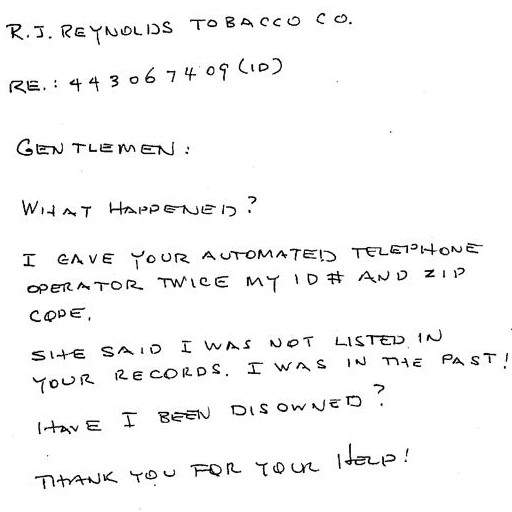 R.J. REYNOLDS TOBACCO CO.
RE.: 443067409 (ID)
GENTLEMEN:
WHAT HAPPENED?
I GAVE YOUR AUTOMATED TELEPHONE
OPERATOR TWICE MY ID# AND ZIP
CODE.
SHE SAID I WAS NOT LISTED IN
YOUR RECORDS. I WAS IN THE PAST!
HAVE I BEEN DISOWNED?
THANK YOU FOR YOUR HELP!